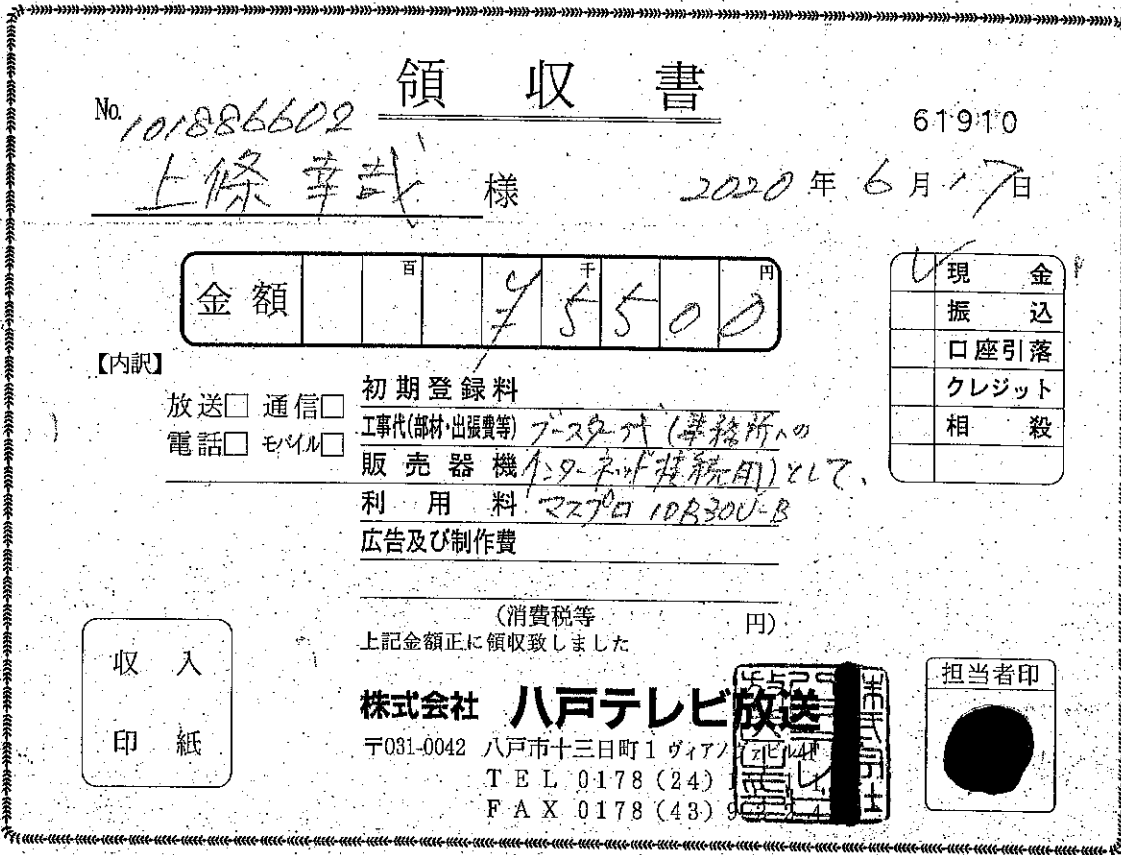 領収書
No. 101886602
61910
上條 幸哉 様
2020年6月17日
金額 百 千 円
¥5500
【内訳】
放送□ 通信□
電話□ モバイル□
初期登録料
工事代(部材・出張費等) ブースター代(事務所への
販売器機 インターネット接続用)として、
利用料 マスプロ 10B30U-B
広告及び制作費
(消費税等 円)
上記金額正に領収致しました
✓現金
振込
口座引落
クレジット
相殺
収入
印紙
株式会社 八戸テレビ放送
〒031-0042 八戸市十三日町1 ヴィアノヴァビル4F
TEL 0178(24)
FAX 0178(43)
担当者印